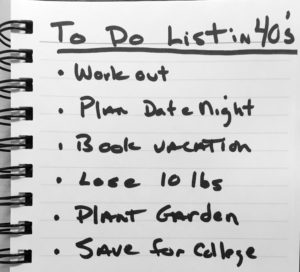 To Do List in 40's
• Work out
• Plan Date Night
• Book vacation
• Lose 10 lbs
• Plant Garden
• Save for College